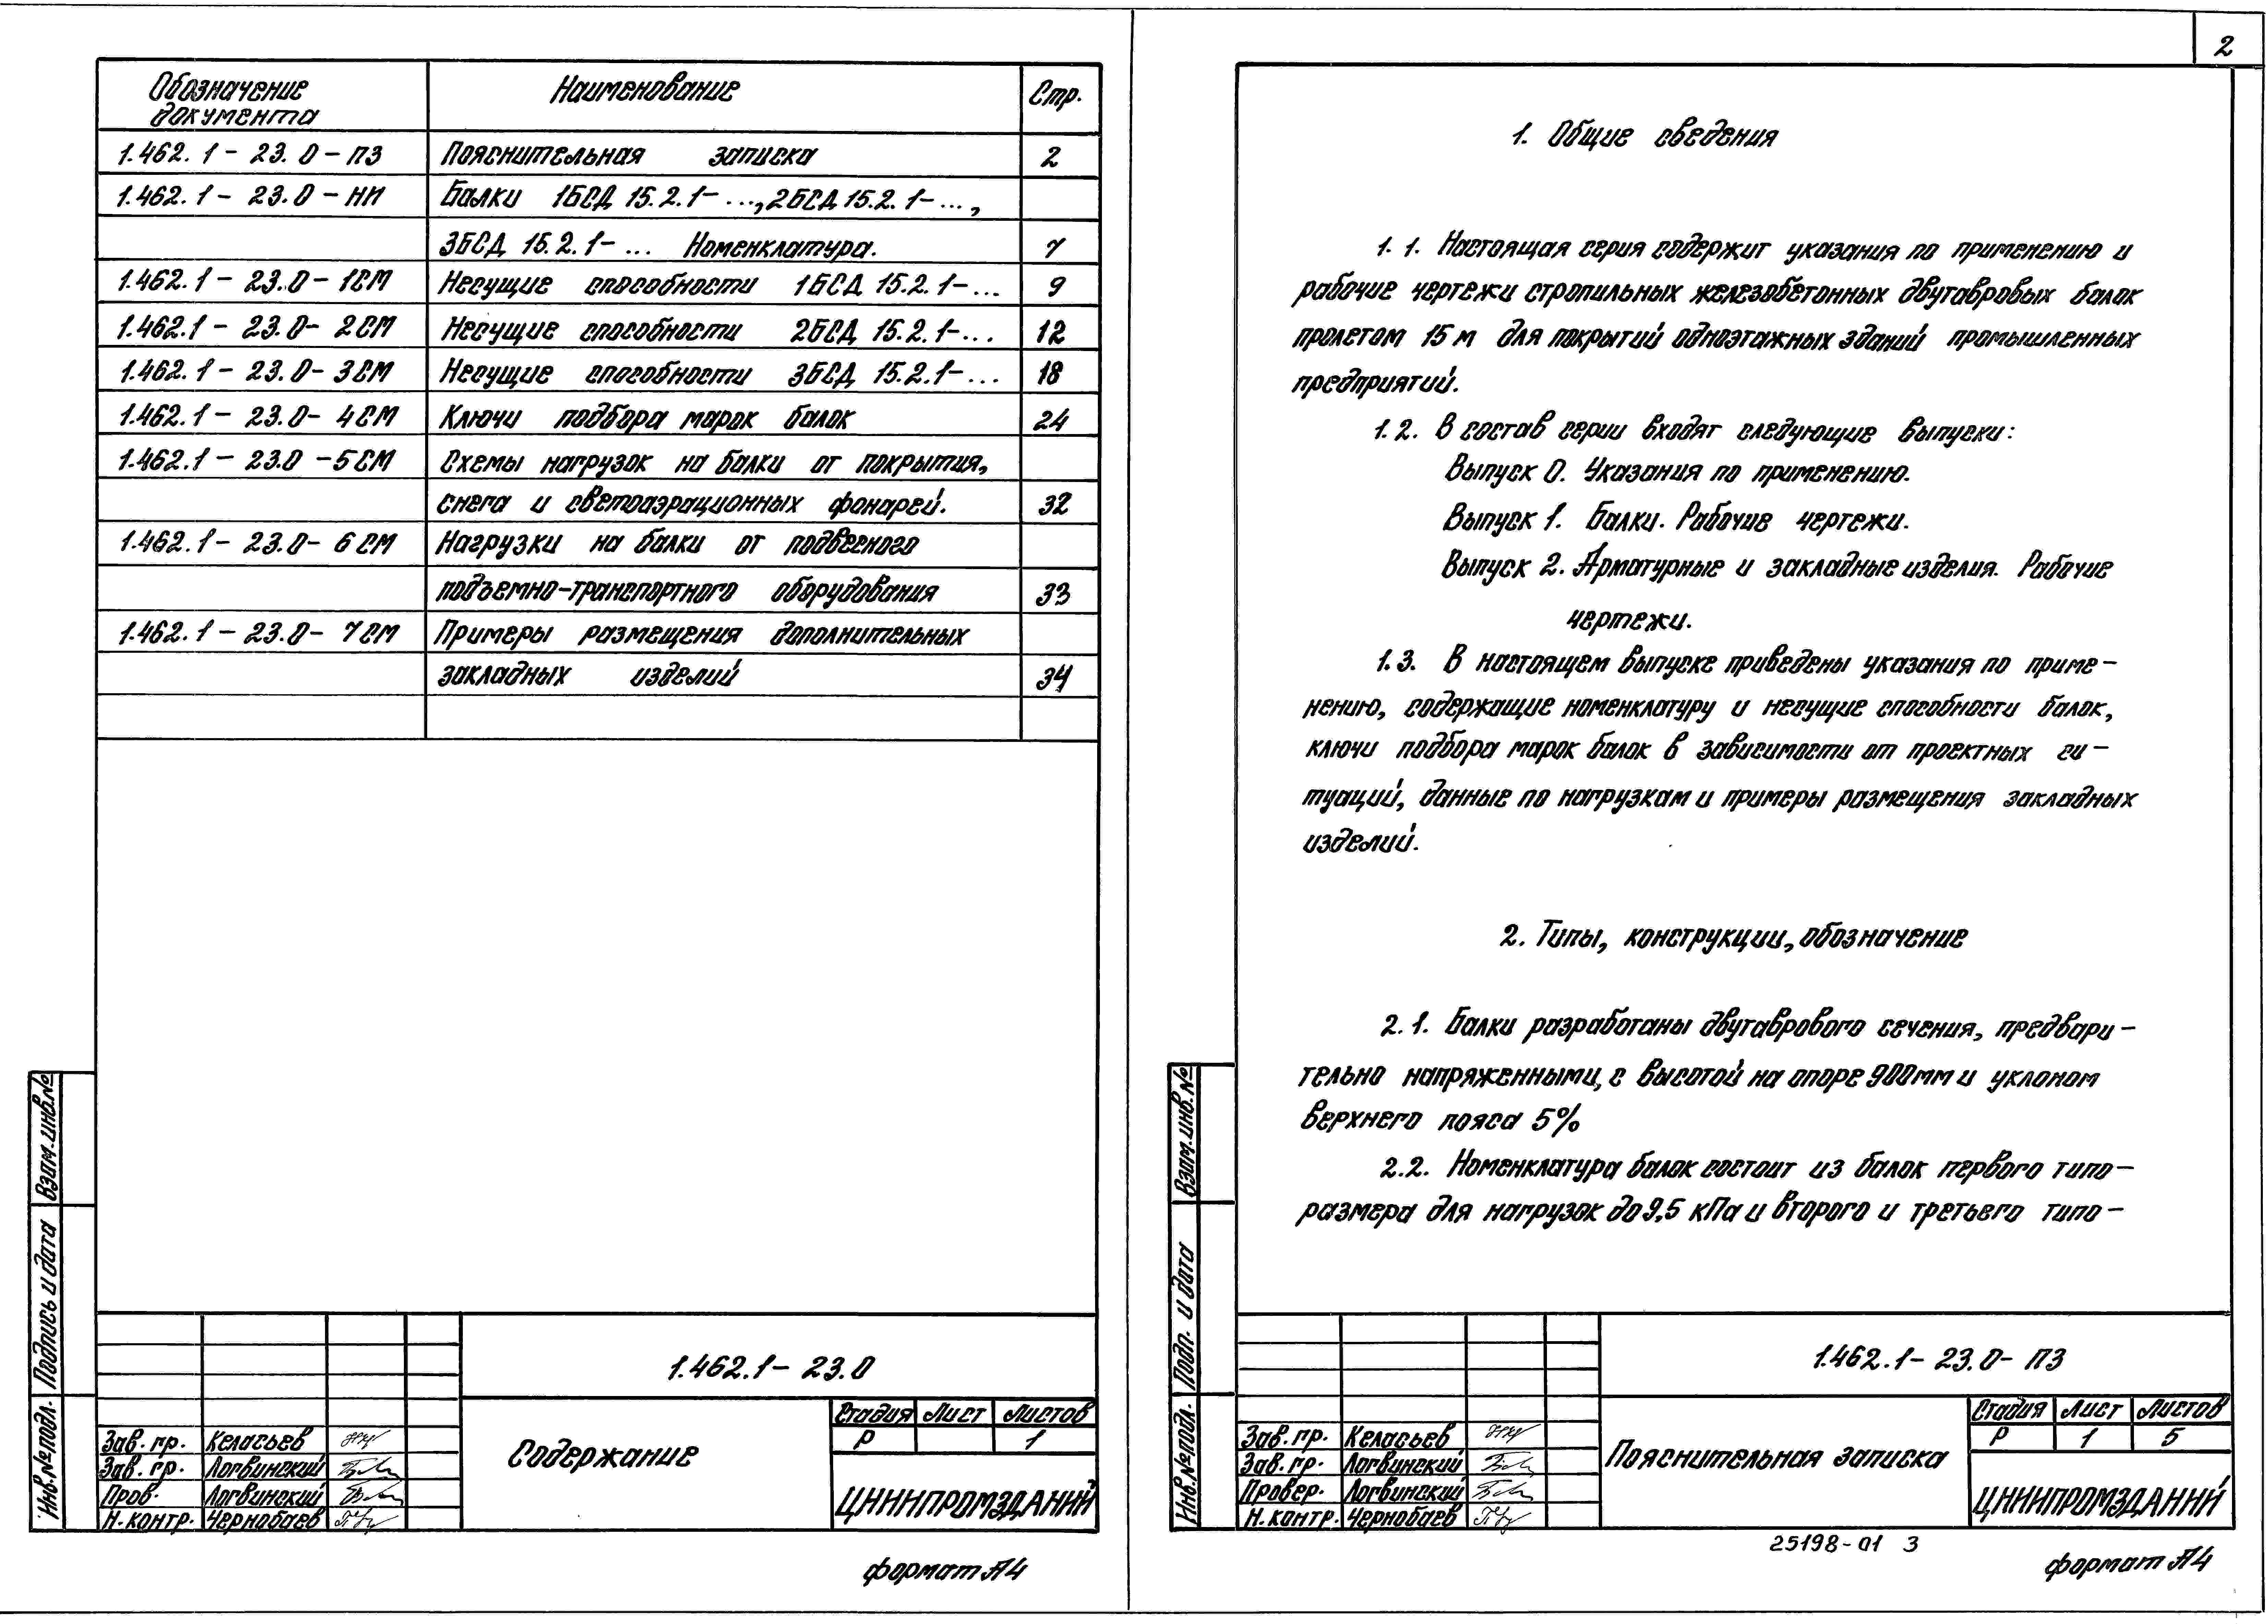 Обозначение документа Наименование Стр.
1.462.1-23.0-ПЗ Пояснительная записка 2
1.462.1-23.0-НИ Балки 1БСД 15.2.1-..., 2БСД 15.2.1-...,
3БСД 15.2.1-... Номенклатура. 7
1.462.1-23.0-1СМ Несущие способности 1БСД 15.2.1-... 9
1.462.1-23.0-2СМ Несущие способности 2БСД 15.2.1-... 12
1.462.1-23.0-3СМ Несущие способности 3БСД 15.2.1-... 18
1.462.1-23.0-4СМ Ключи подбора марок балок 24
1.462.1-23.0-5СМ Схемы нагрузок на балки от покрытия,
снега и светоаэрационных фонарей. 32
1.462.1-23.0-6СМ Нагрузки на балки от подвесного
подъемно-транспортного оборудования 33
1.462.1-23.0-7СМ Примеры размещения дополнительных
закладных изделий 34
Взам.инв.№
Подпись и дата
Инв.№подл.
1.462.1-23.0
Содержание
Стадия Лист Листов
Р 1
Зав.гр. Келасьев
Зав.гр. Логвинский
Пров. Логвинский
Н.контр. Чернобаев
ЦНИИПРОМЗДАНИЙ
формат А4
2
1. Общие сведения
1.1. Настоящая серия содержит указания по применению и
рабочие чертежи стропильных железобетонных двутавровых балок
пролетом 15 м для покрытий одноэтажных зданий промышленных
предприятий.
1.2. В состав серии входят следующие выпуски:
Выпуск 0. Указания по применению.
Выпуск 1. Балки. Рабочие чертежи.
Выпуск 2. Арматурные и закладные изделия. Рабочие
чертежи.
1.3. В настоящем выпуске приведены указания по приме-
нению, содержащие номенклатуру и несущие способности балок,
ключи подбора марок балок в зависимости от проектных си-
туаций, данные по нагрузкам и примеры размещения закладных
изделий.
2. Типы, конструкции, обозначение
2.1. Балки разработаны двутаврового сечения, предвари-
тельно напряженными, с высотой на опоре 900мм и уклоном
верхнего пояса 5%
2.2. Номенклатура балок состоит из балок первого типо-
размера для нагрузок до 9,5 кПа и второго и третьего типо-
Взам.инв.№
Подп. и дата
Инв.№подл.
1.462.1-23.0-ПЗ
Пояснительная записка
Стадия Лист Листов
Р 1 5
Зав.гр. Келасьев
Зав.гр. Логвинский
Провер. Логвинский
Н.контр. Чернобаев
ЦНИИПРОМЗДАНИЙ
25198-01 3
формат А4